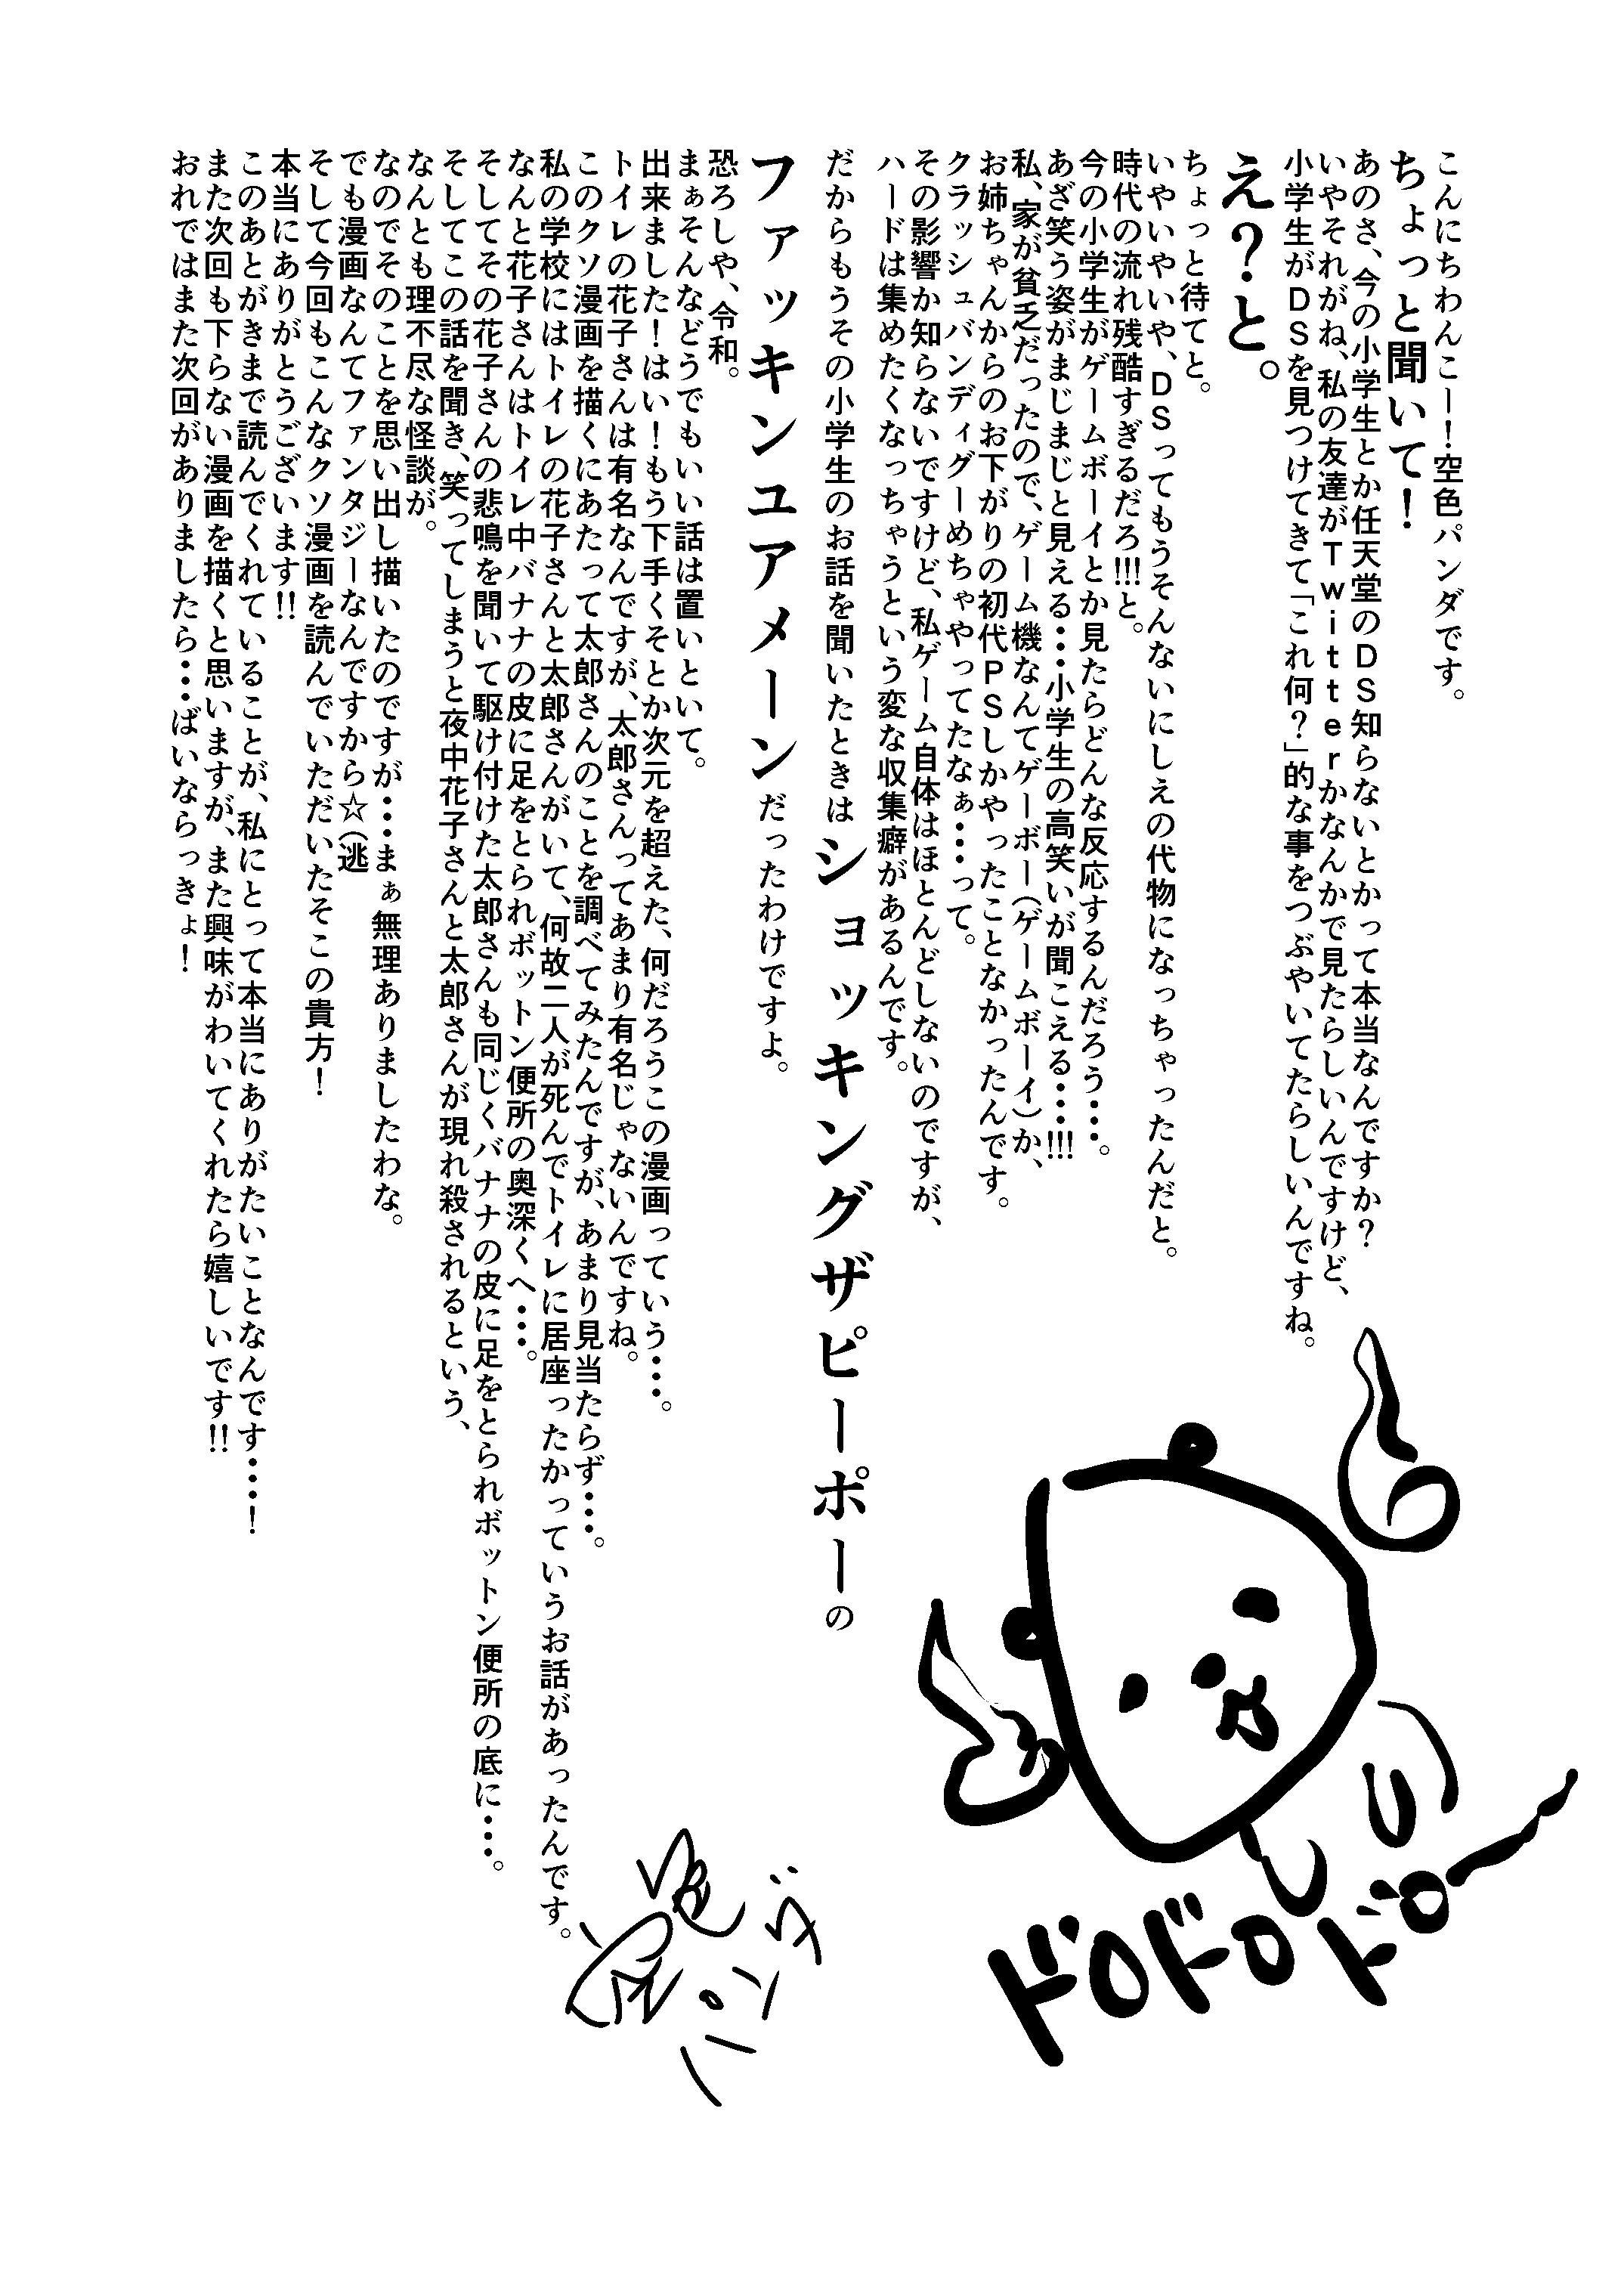 こんにちわんこー！空色パンダです。
ちょっと聞いて！
あのさ、今の小学生とか任天堂のＤＳ知らないとかって本当なんですか？
いやそれがね、私の友達がＴｗｉｔｔｅｒかなんかで見たらしいんですけど、
小学生がＤＳを見つけてきて「これ何？」的な事をつぶやいてたらしいんですね。
え？と。
ちょっと待てと。
いやいやいや、ＤＳってもうそんないにしえの代物になっちゃったんだと。
時代の流れ残酷すぎるだろ!!!と。
今の小学生がゲームボーイとか見たらどんな反応するんだろう・・・。
あざ笑う姿がまじまじと見える・・・小学生の高笑いが聞こえる・・・!!!
私、家が貧乏だったので、ゲーム機なんてゲーボー（ゲームボーイ）か、
お姉ちゃんからのお下がりの初代ＰＳしかやったことなかったんです。
クラッシュバンディグーめちゃやってたなぁ・・・って。
その影響か知らないですけど、私ゲーム自体はほとんどしないのですが、
ハードは集めたくなっちゃうという変な収集癖があるんです。
だからもうその小学生のお話を聞いたときはショッキングザピーポーの
ファッキンユアメーンだったわけですよ。
恐ろしや、令和。
まぁそんなどうでもいい話は置いといて。
出来ました！はい！もう下手くそとか次元を超えた、何だろうこの漫画っていう・・・。
トイレの花子さんは有名なんですが、太郎さんってあまり有名じゃないんですね。
このクソ漫画を描くにあたって太郎さんのことを調べてみたんですが、あまり見当たらず・・・。
私の学校にはトイレの花子さんと太郎さんがいて、何故二人が死んでトイレに居座ったかっていうお話があったんです。
なんと花子さんはトイレ中バナナの皮に足をとられボットン便所の奥深くへ・・・。
そしてその花子さんの悲鳴を聞いて駆け付けた太郎さんも同じくバナナの皮に足をとられボットン便所の底に・・・。
そしてこの話を聞き、笑ってしまうと夜中花子さんと太郎さんが現れ殺されるという、
なんとも理不尽な怪談が。
なのでそのことを思い出し描いたのですが・・・まぁ無理ありましたわな。
でも漫画なんてファンタジーなんですから☆（逃
そして今回もこんなクソ漫画を読んでいただいたそこの貴方！
本当にありがとうございます!!
このあとがきまで読んでくれていることが、私にとって本当にありがたいことなんです・・・！
また次回も下らない漫画を描くと思いますが、また興味がわいてくれたら嬉しいです!!
おれではまた次回がありましたら・・・ばいならっきょ！
ドロドロドロー
空色
パンダ